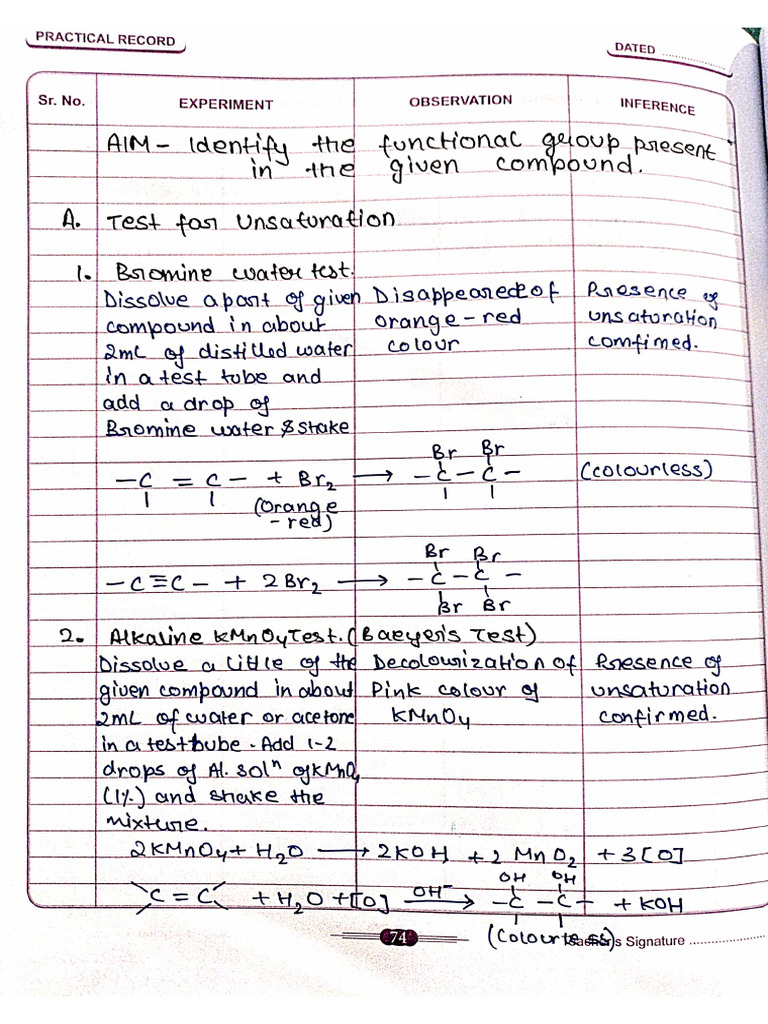 PRACTICAL RECORD
DATED ....................
Sr. No. EXPERIMENT OBSERVATION INFERENCE
AIM - Identify the functional group present
in the given compound.
A. Test for Unsaturation
1. Bromine water test.
Dissolve a part of given Disappeared of Presence of
compound in about orange-red unsaturation
2mL of distilled water colour comfimed.
in a test tube and
add a drop of
Bromine water & shake
Br Br
-C = C- + Br₂ → -C-C- (colourless)
(Orange
-red)
Br Br
-C≡C- + 2Br₂ → -C-C-
Br Br
2. Alkaline KMnO₄ Test. (Baeyer's Test)
Dissolve a little of the Decolourization of Presence of
given compound in about Pink colour of unsaturation
2mL of water or acetone KMnO₄ confirmed.
in a test tube. Add 1-2
drops of Al. solⁿ of KMnO₄
(1%) and shake the
mixture.
2KMnO₄ + H₂O → 2KOH + 2MnO₂ + 3[O]
OH OH
C = C + H₂O + [O] OH⁻→ -C-C- + KOH
(Colourless)
74 Teacher's Signature ....................